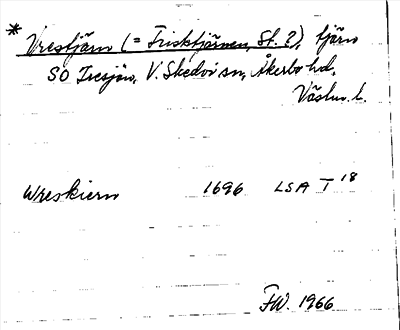 * Vrestjärn (= Fisktjärnen, St. 2), tjärn
SO Iresjön, V. Skedvi sn, Åkerbo hd,
Västm. l.
Wreskiern 1696 LSA T 18
F.W. 1966